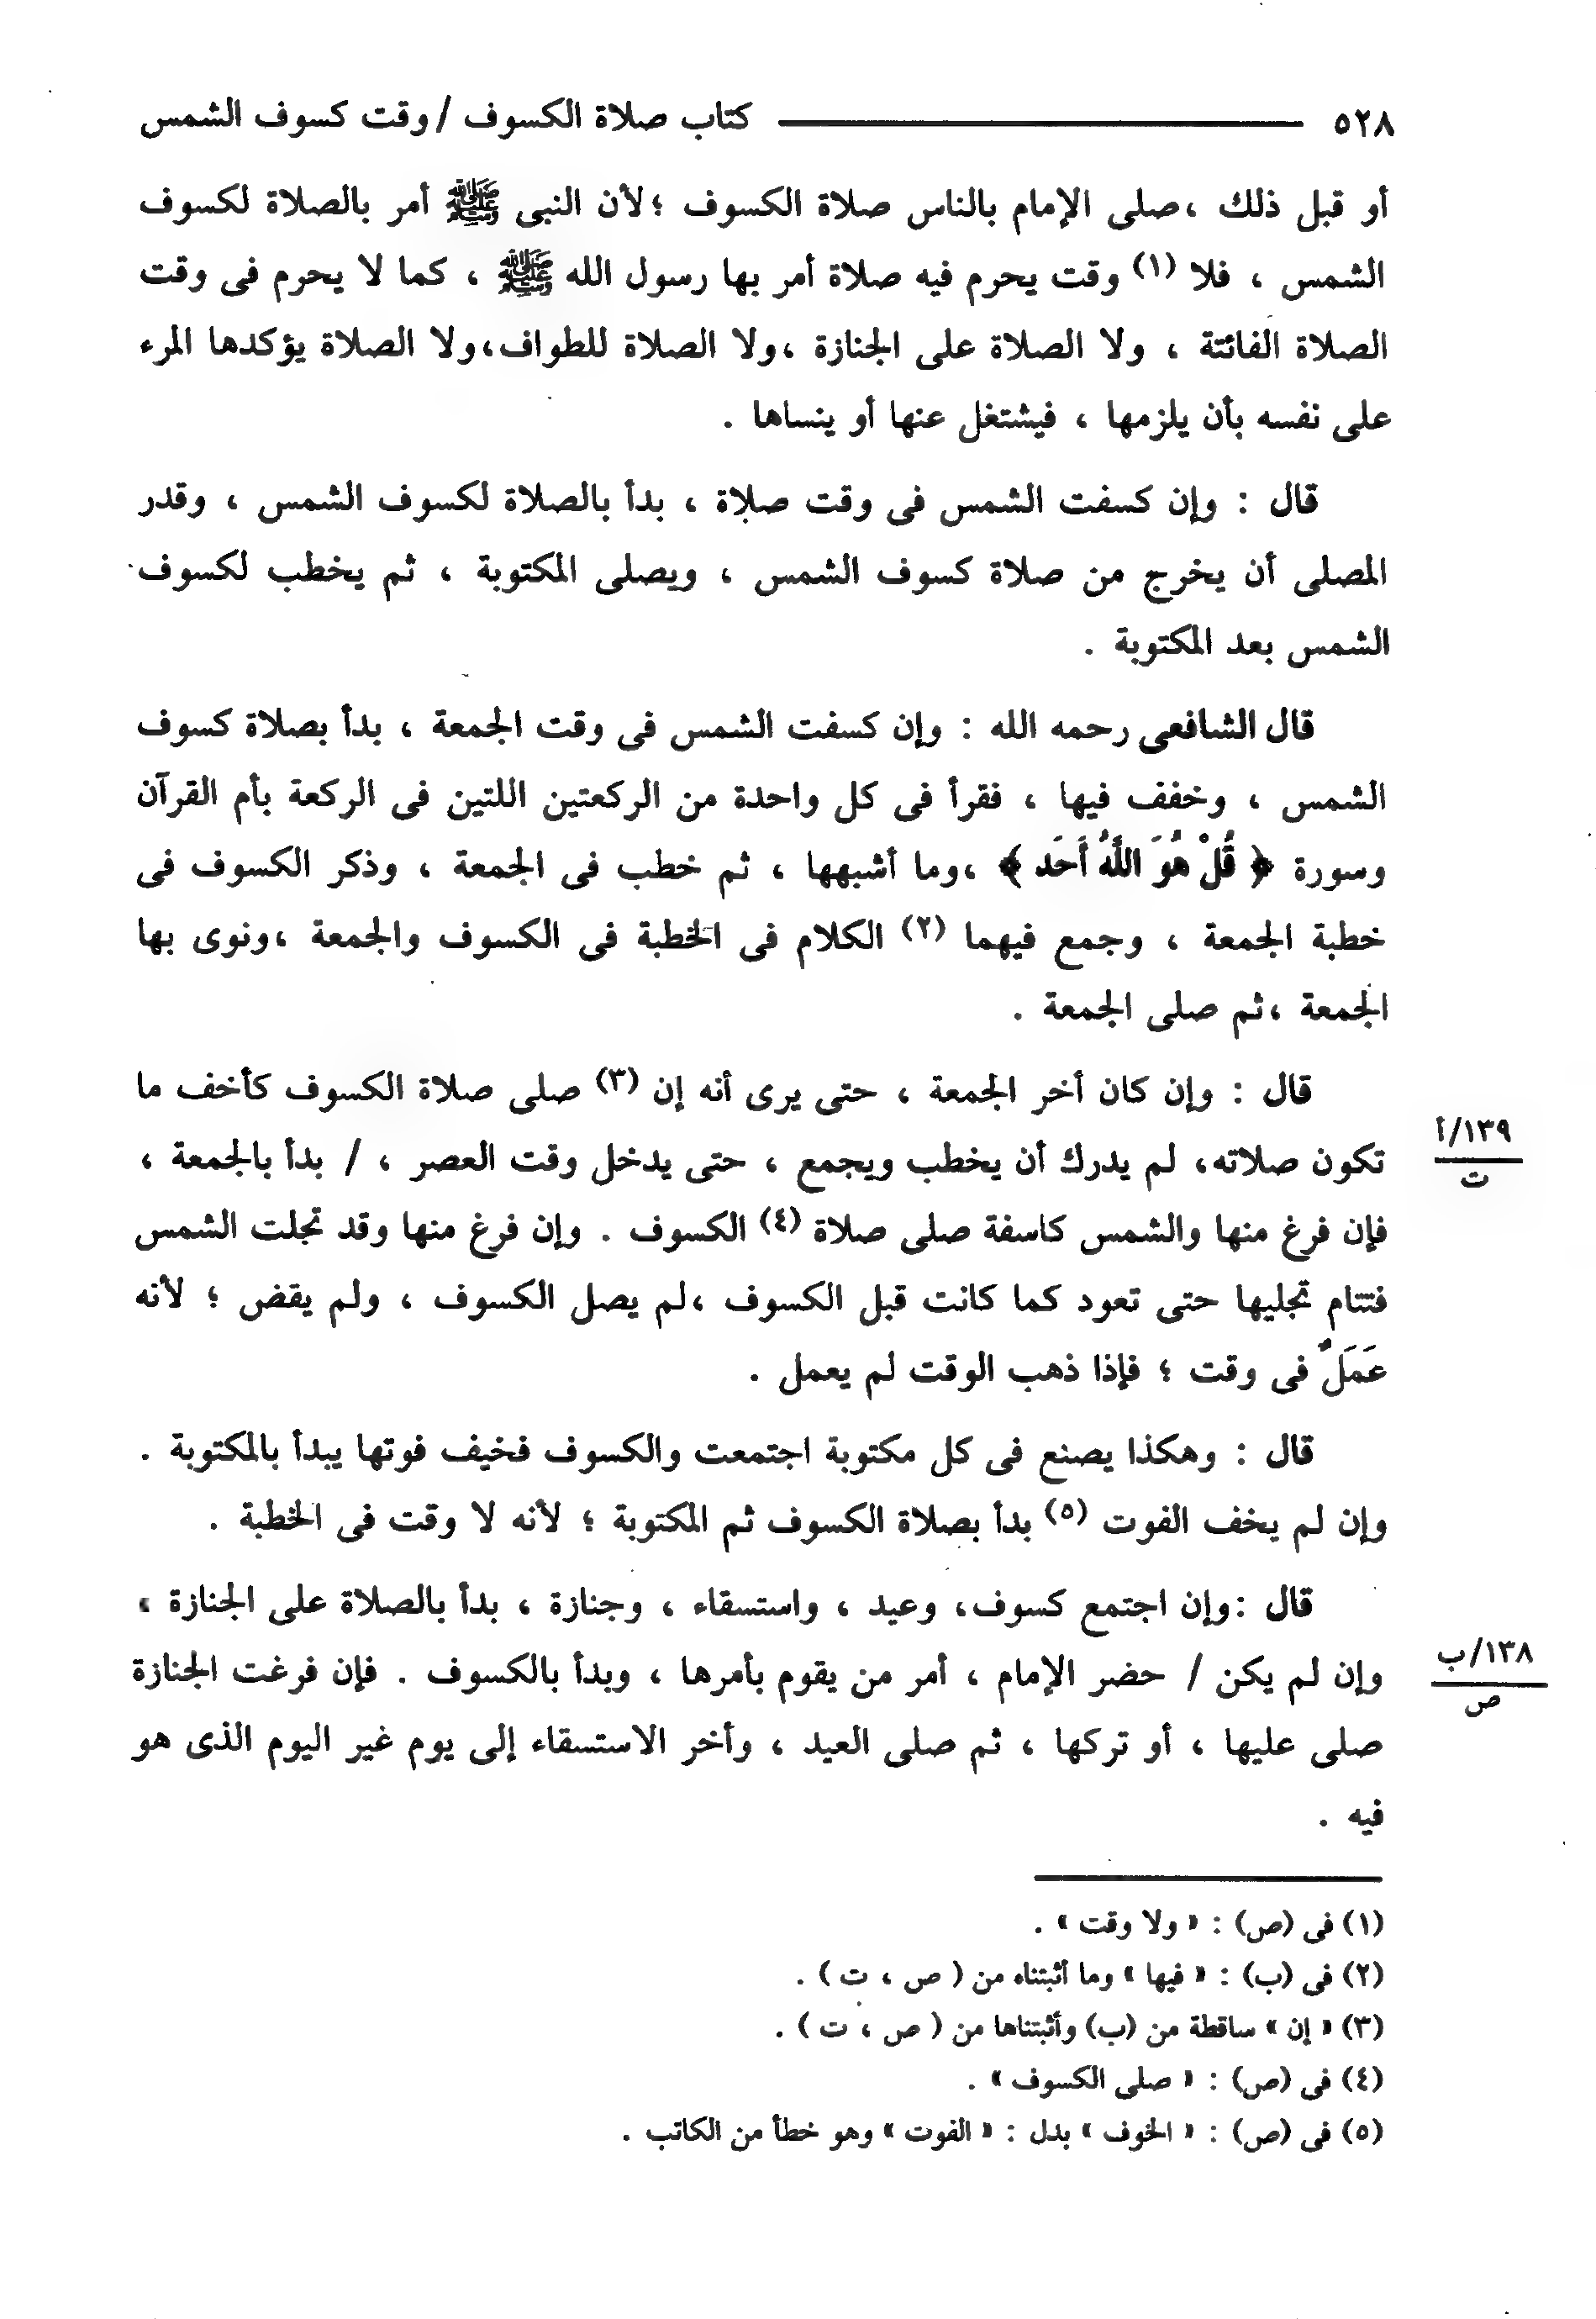 ٥٢٨ كتاب صلاة الكسوف / وقت كسوف الشمس
أو قبل ذلك ،صلى الإمام بالناس صلاة الكسوف ؛لأن النبى ﷺ أمر بالصلاة لكسوف
الشمس ، فلا (١) وقت يحرم فيه صلاة أمر بها رسول الله ﷺ ، كما لا يحرم فى وقت
الصلاة الفائتة ، ولا الصلاة على الجنازة ،ولا الصلاة للطواف،ولا الصلاة يؤكدها المرء
على نفسه بأن يلزمها ، فيشتغل عنها أو ينساها .
قال : وإن كسفت الشمس فى وقت صلاة ، بدأ بالصلاة لكسوف الشمس ، وقدر
المصلى أن يخرج من صلاة كسوف الشمس ، ويصلى المكتوبة ، ثم يخطب لكسوف
الشمس بعد المكتوبة .
قال الشافعى رحمه الله : وإن كسفت الشمس فى وقت الجمعة ، بدأ بصلاة كسوف
الشمس ، وخفف فيها ، فقرأ فى كل واحدة من الركعتين اللتين فى الركعة بأم القرآن
وسورة ﴿ قُلْ هُوَ اللَّهُ أَحَد ﴾ ،وما أشبهها ، ثم خطب فى الجمعة ، وذكر الكسوف فى
خطبة الجمعة ، وجمع فيهما (٢) الكلام فى الخطبة فى الكسوف والجمعة ،ونوى بها
الجمعة ،ثم صلى الجمعة .
قال : وإن كان أخر الجمعة ، حتى يرى أنه إن (٣) صلى صلاة الكسوف كأخف ما
١٣٩/أ
تكون صلاته، لم يدرك أن يخطب ويجمع ، حتى يدخل وقت العصر ، / بدأ بالجمعة ،
ت
فإن فرغ منها والشمس كاسفة صلى صلاة (٤) الكسوف . وإن فرغ منها وقد تجلت الشمس
فتتام تجليها حتى تعود كما كانت قبل الكسوف ،لم يصل الكسوف ، ولم يقض ؛ لأنه
عَمَلٌ فى وقت ؛ فإذا ذهب الوقت لم يعمل .
قال : وهكذا يصنع فى كل مكتوبة اجتمعت والكسوف فخيف فوتها يبدأ بالمكتوبة .
وإن لم يخف الفوت (٥) بدأ بصلاة الكسوف ثم المكتوبة ؛ لأنه لا وقت فى الخطبة .
قال :وإن اجتمع كسوف، وعيد ، واستسقاء ، وجنازة ، بدأ بالصلاة على الجنازة ،
١٣٨/ب
وإن لم يكن / حضر الإمام ، أمر من يقوم بأمرها ، وبدأ بالكسوف . فإن فرغت الجنازة
ص
صلى عليها ، أو تركها ، ثم صلى العيد ، وأخر الاستسقاء إلى يوم غير اليوم الذى هو
فيه .
(١) فى (ص) : « ولا وقت » .
(٢) فى (ب) : « فيها » وما أثبتناه من ( ص ، ت ) .
(٣) « إن » ساقطة من (ب) وأثبتناها من ( ص ، ت ) .
(٤) فى (ص) : « صلى الكسوف » .
(٥) فى (ص) : « الخوف » بدل : « الفوت » وهو خطأ من الكاتب .